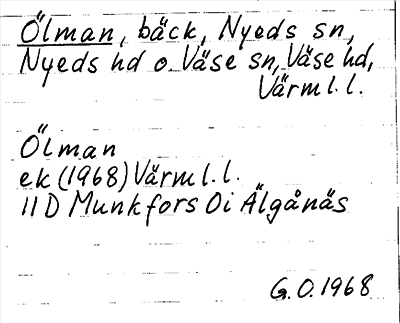 Ölman, bäck, Nyeds sn,
Nyeds hd o. Väse sn, Väse hd,
Värml. l.
Ölman
ek (1968) Värml. l.
11D Munkfors 0i Älgånäs
G.O. 1968